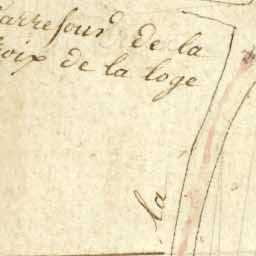 Carrefour de la
Croix de la loge
la